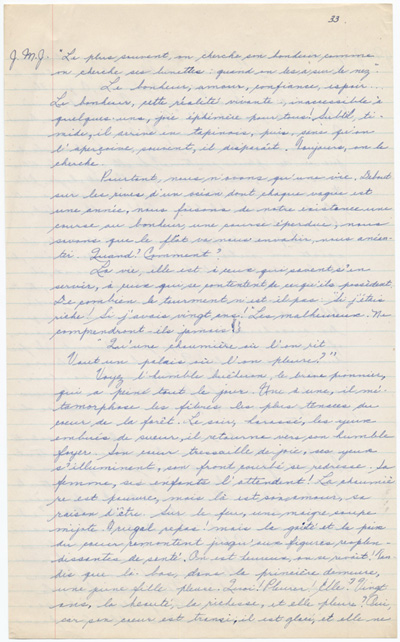 33.
J. M. J. "Le plus souvent, on cherche son bonheur comme
on cherche ses lunettes: quand on les a sur le nez."
Le bonheur, amour, confiance, espoir...
Le bonheur, cette réalité vivante, inaccessible à
quelques-uns, joie éphémère pour tous! Subtil, ti-
mide, il arrive en tapinois, puis, sans qu'on
l'aperçoive souvent, il disparaît. Toujours, on le
cherche.
Pourtant, nous n'avons qu'une vie. Debout
sur les rives d'un océan dont chaque vague est
une année, nous faisons de notre existence une
course au bonheur, une course éperdue; nous
savons que le flot va nous envahir, nous anéan-
tir. Quand? Comment?
La vie, elle est à ceux qui savent s'en
servir, à ceux qui se contentent de ce qu'ils possèdent.
De combien le tourment n'est-il pas: Si j'étais
riche! Si j'avais vingt ans! Les malheureux. Ne
comprendront-ils jamais
"Qu'une chaumière où l'on rit
Vaut un palais où l'on pleure?"
Voyez l'humble bûcheron, le brave pionnier,
qui a peiné tout le jour. Une à une, il mé-
tamorphose les fibres les plus tenaces du
coeur de la forêt. Le soir, harassé, les yeux
embués de sueur, il retourne vers son humble
foyer. Son coeur tressaille de joie, ses yeux
s'illuminent, son front courbé se redresse. Sa
femme, ses enfants l'attendent! La chaumiè-
re est pauvre, mais là est son amour, sa
raison d'être. Sur le feu, une maigre soupe
mijote. Frugal repas! mais la gaîté et la paix
du coeur remontent jusqu'aux figures resplen-
dissantes de santé. On est heureux, on se réjouit! Tan-
dis que là-bas, dans la princière demeure,
une jeune fille pleure. Quoi! Pleurer! Elle? Vingt
ans, la beauté, la richesse, et elle pleure? Oui,
car son coeur est transi, il est glacé, et elle ne